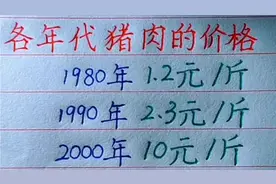 各年代猪肉的价格
1980年 1.2元/斤
1990年 2.3元/斤
2000年 10元/斤